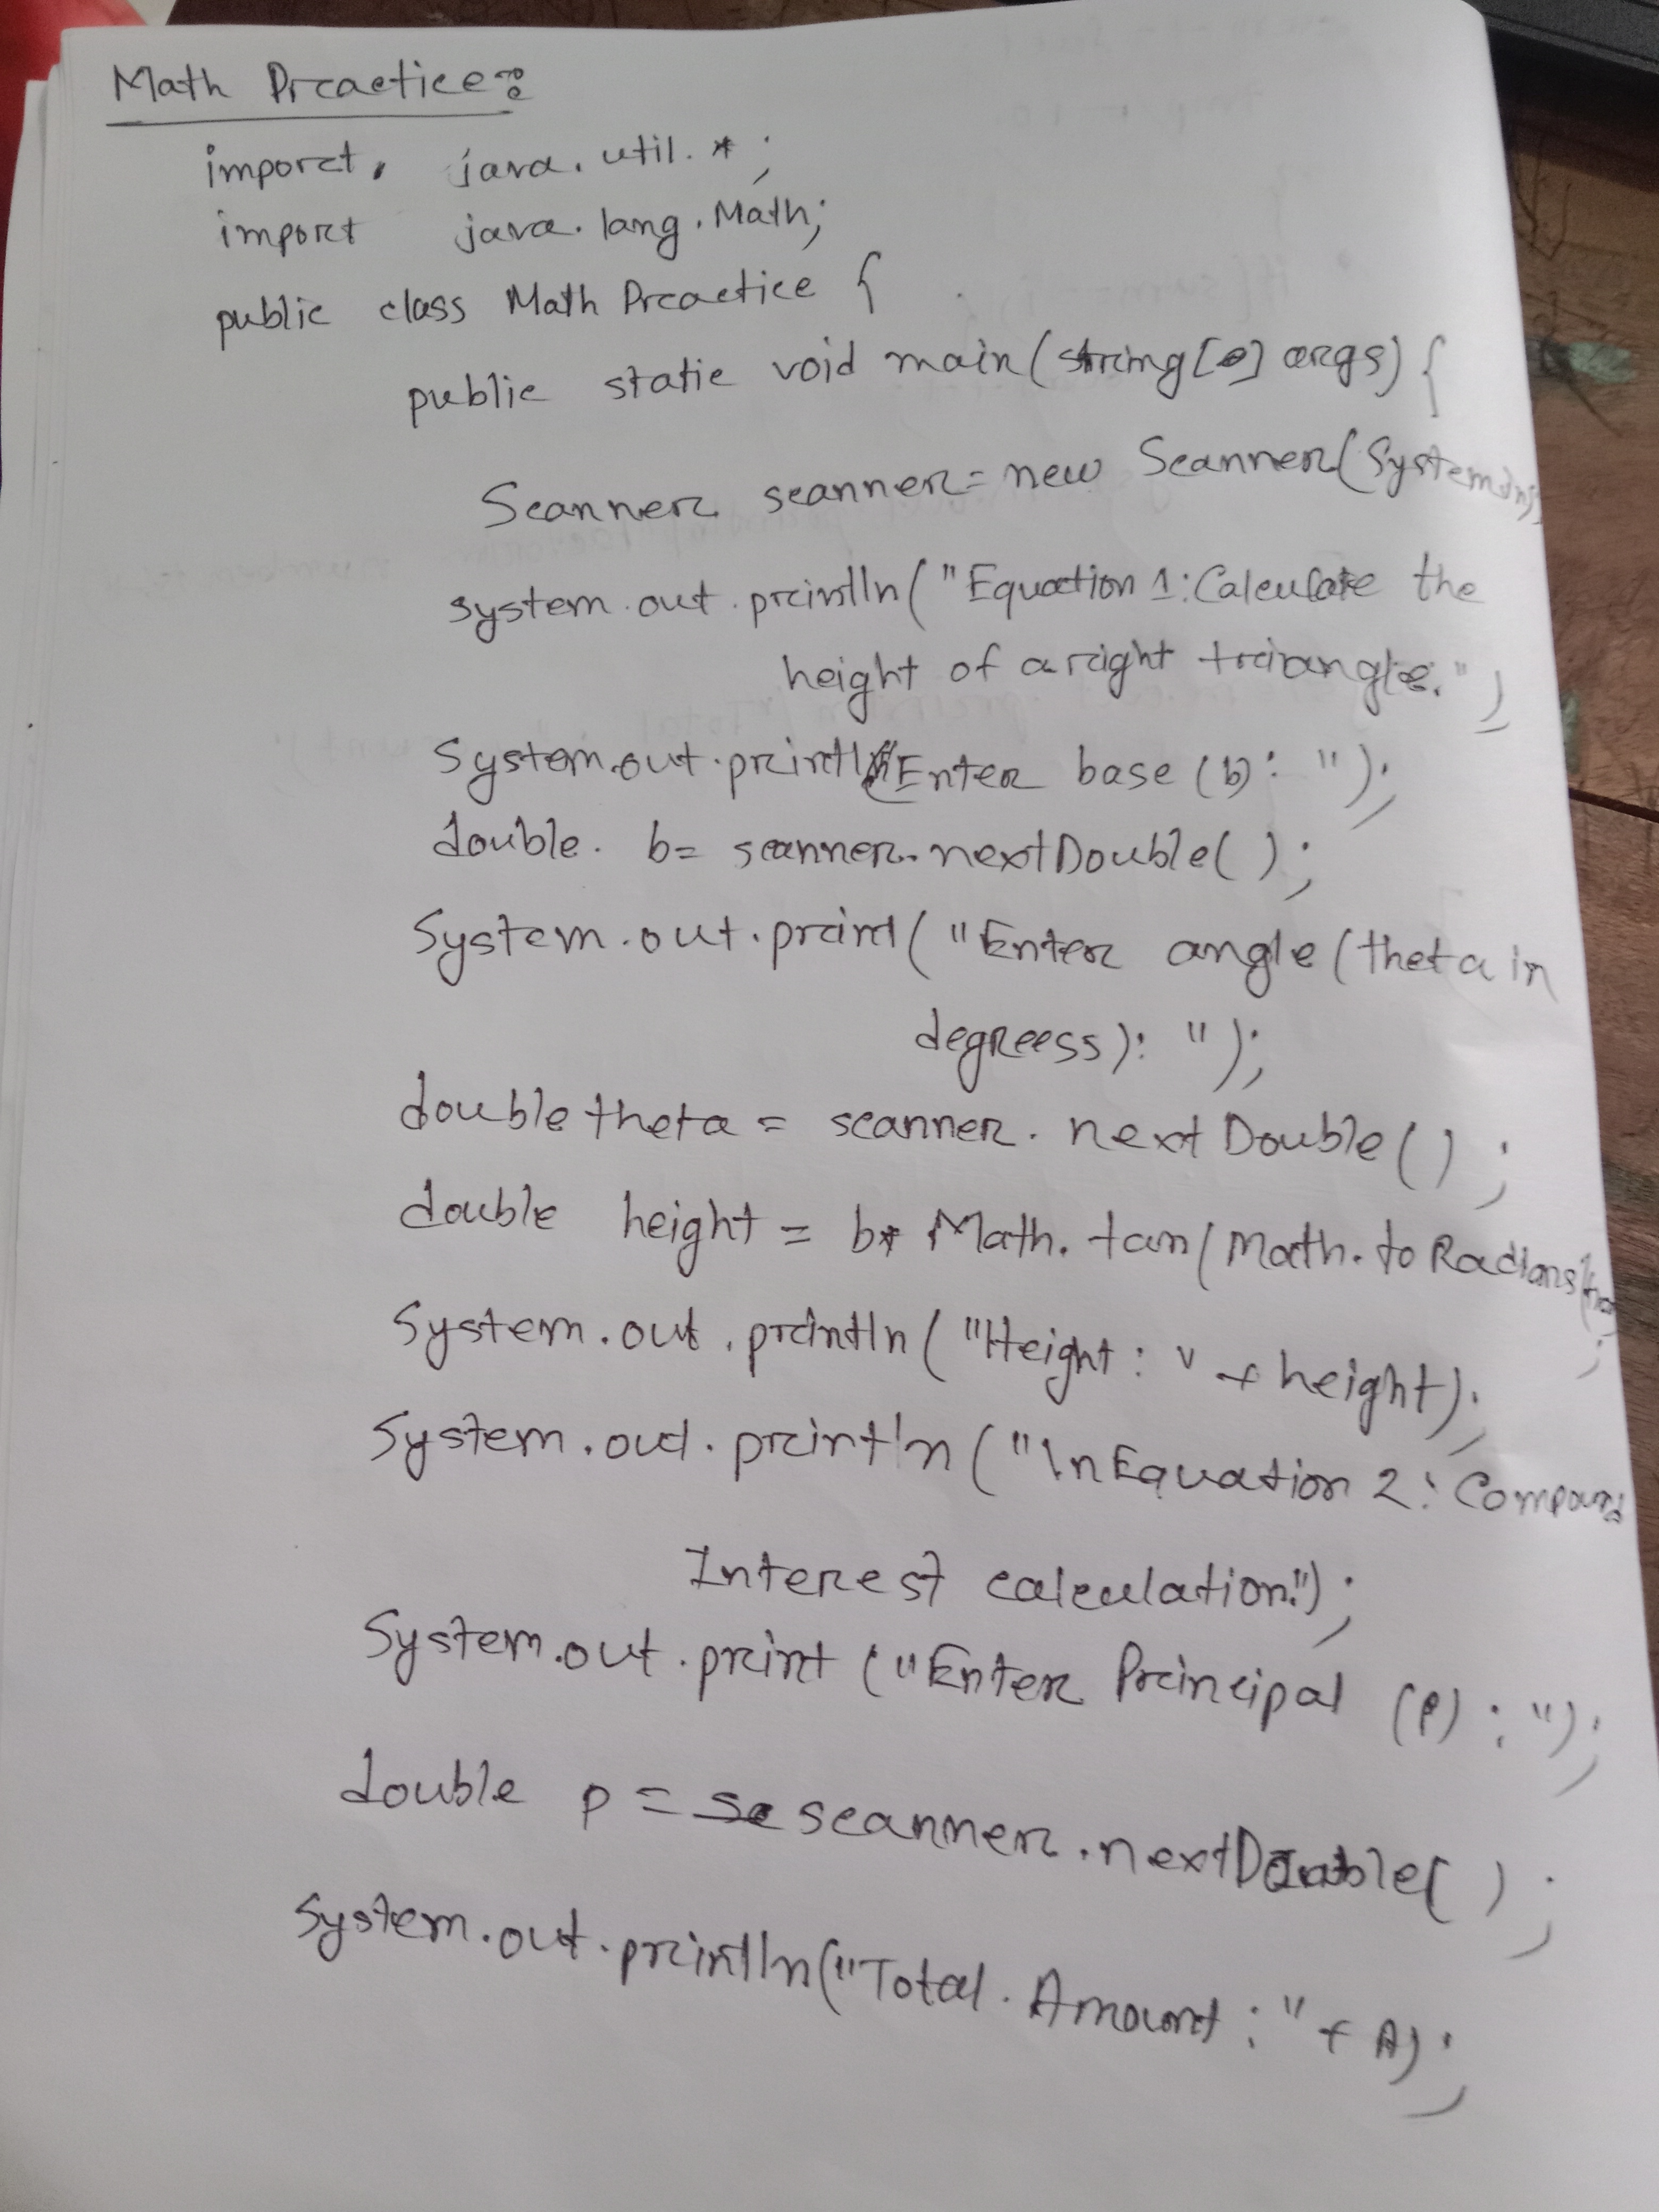 Math Practice:
import, java.util.*;
import java.lang.Math;
public class Math Practice {
public static void main(string[] args) {
Scanner scanner = new Scanner(System.in)
system.out.println("Equation 1: Calculate the
height of a right triangle.");
System.out.println("Enter base (b): ");
double. b= scanner.nextDouble( );
System.out.print("Enter angle (theta in
degreess): ");
double theta = scanner.nextDouble( );
double height = b* Math.tan(Math.toRadians(
;
System.out.println("Height: " + height);
System.out.println("\nEquation 2: Compound
Interest calculation.");
System.out.print("Enter Principal (P) : ");
double p = scanner.nextDouble( );
System.out.println("Total. Amount : " + A);